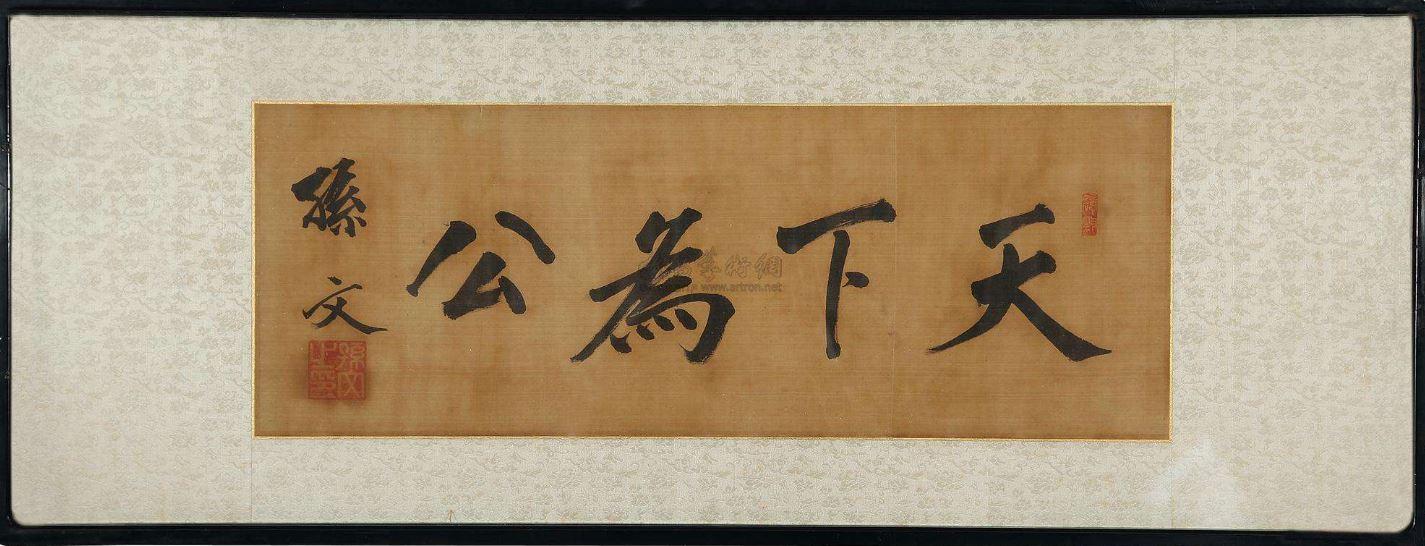 天下為公
孫文
孫文之印
www.artron.net